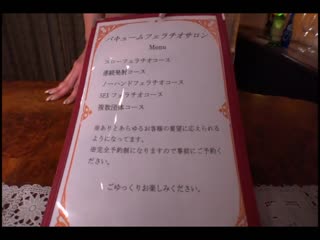 バキュームフェラチオサロン
Menu
スローフェラチオコース
連続発射コース
ノーハンドフェラチオコース
SEXフェラチオコース
複数団体コース
※ありとあらゆるお客様の要望に応えられる
ようになってます。
※完全予約制になりますので事前にご予約く
ださい。
ごゆっくりお楽しみください。